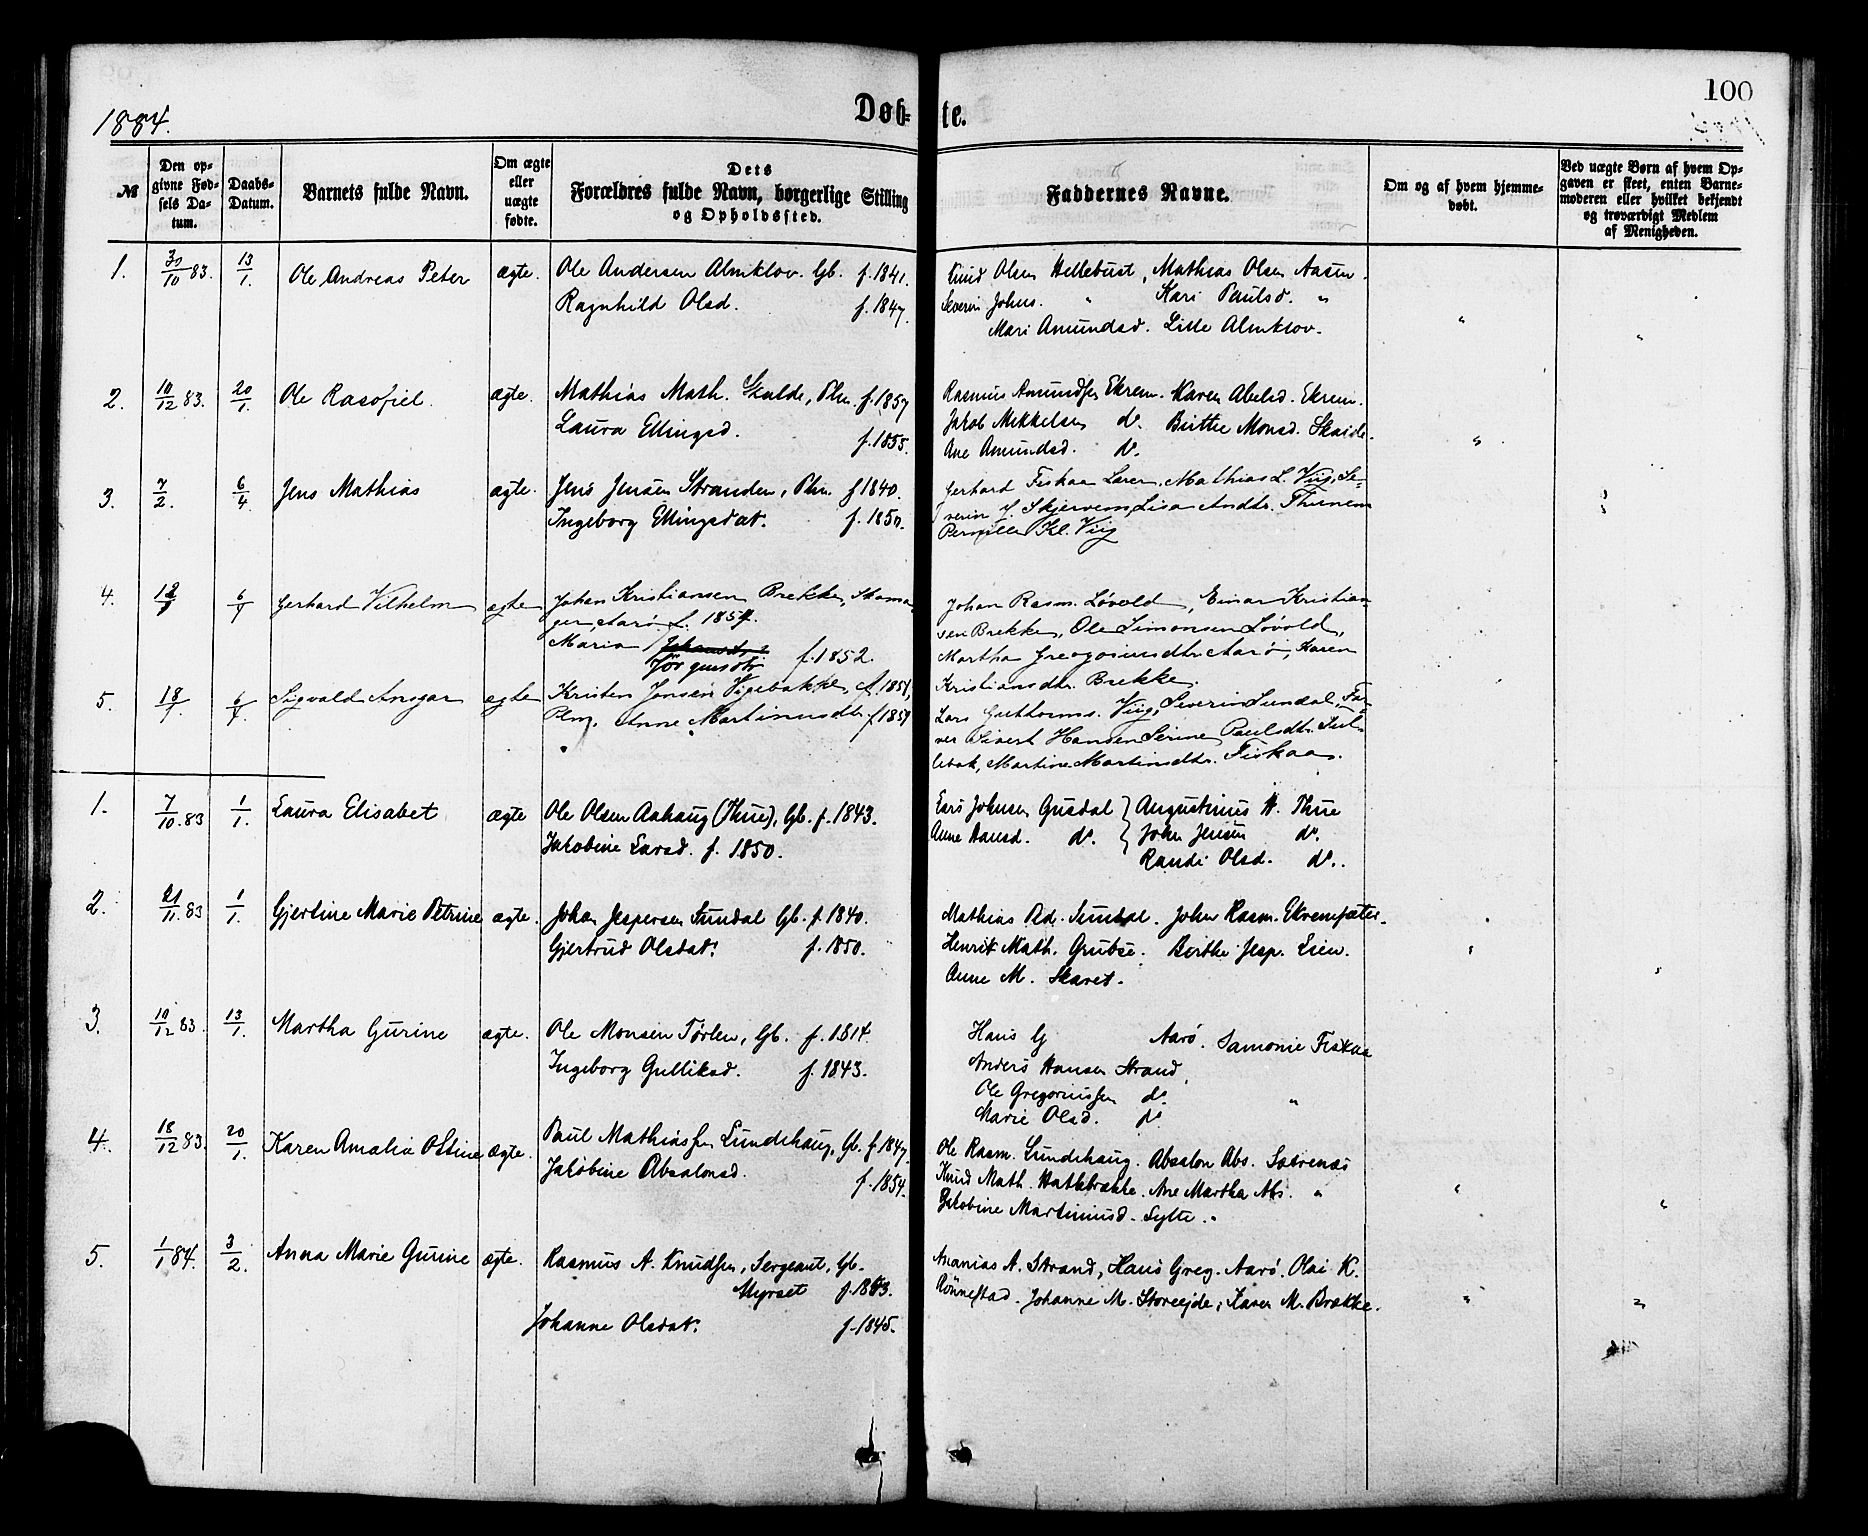 1884.
Døb-te.
100
№
Den opgivne Fødsels Datum.
Daabs-Datum.
Barnets fulde Navn.
Om ægte eller uægte fødte.
Dets Forældres fulde Navn, borgerlige Stilling og Opholdssted.
Faddernes Navne.
Om og af hvem hjemmedøbt.
Ved uægte Børn af hvem Opgaven er skeet, enten Barnemoderen eller hvilket bekjendt og troværdigt Medlem af Menigheden.
1. 30/10 83. 13/1. Ole Andreas Peter ægte. Ole Andersen Almklov. Gb. f. 1841. Knud Olsen Hellebust, Mathias Olsen Aasen.
Ragnhild Olsd. f. 1847. Severin Johns. " Kari Paulsd. "
Mari Amundsd. Lille Almklov.
2. 10/12 83. 20/1. Ole Rasofiel. ægte. Mathias Math. Skulde, Plm. f. 1857 Rasmus Amundsen Ekrem. Karen Abelsd. Ekrem.
Laura Ellingsd. f. 1855. Jakob Mikkelsen do. Birthe Monsd. Skeide.
Ane Amundsd. do.
3. 7/2. 6/4 Jens Mathias ægte. Jens Jensen Stranden, Plm. f 1840. Gerhard Fiskaa Lærer, Mathias L. Viig, Se-
Ingeborg Ellingsdat. f. 1850. verin J. Skjervem, Lisa Andts. Thunem
Pernille Kl. Viig
4. 6/7 Gerhard Vilhelm ægte Johan Kristiansen Brekke, Skoma-
ger Aarø. f. 1854. Johan Rasm. Løvold, Einar Kristian-
Maria Johansdtr Jørgensdtr f. 1852. sen Brekke, Ole Simonsen Løvold,
Martha Gregoriusdtr Aarø, Karen
Kristiansdtr. Brekke.
5. 18/ 6/7 Sigvald Ansgar ægte Kristen Jonsen Vigebakke, f. 1851, Lars Guthorms. Viig, Severin Sundal, Far-
Plm, Anne Martinusdtr f 1854 ver Sivert Hansen Serine Paulsdtr. Sul-
lebak, Martine Martinsdtr. Fiskaa.
1. 7/10. 83 1/1. Laura Elisabet ægte Ole Olsen Aahaug (Thue), Gb. f. 1843. Lars Johnsen Gusdal Augustinus H. Thue
Jakobine Larsd. f. 1850. Anne Hansd. do. John Jensen do.
Randi Olsd. do.
2. 21/11. 83 1/1. Gjertine Marie Petrine ægte. Johan Jespersen Sundal Gb. f. 1840. Mathias Rd. Sundal. Johan Rasm. Ekremsæter.
Gjertrud Olsdat. f. 1850. Henrik Math. Grubse. Berthe Jesp. Lien.
Anne M. Skaret.
3. 10/12 83. 13/1. Martha Gurine ægte. Ole Monsen Tørlen, Gb. f. 1814. Hans G Aarø. Samonie Fiskaa
Ingeborg Gulliksd. f. 1843. Anders Hansen Strand,
Ole Gregoriussen do. "
Marie Olsd. do
4. 18/12 83. 20/1. Karen Amalia Ostine ægte. Paul Mathiassen Lundehaug, Gb. f. 1847. Ole Rasm. Lundehaug. Absalon Abs. Sætrenæs
Jakobine Absalonsd. f. 1854. Knud Math. Hatlebrække. Ane Martha Abs. "
Jakobine Martinusd. Sylte.
5. 1/1 84. 3/2. Anna Marie Gurine ægte. Rasmus A. Knudsen, Sergeant, Gb. Ananias A. Strand, Hans Greg. Aarø. Olai K.
Myrset f. 1843. Rønnestad. Johanne M. Storeeide, Karen M. Brække.
Johanne Olsdat. f. 1845.